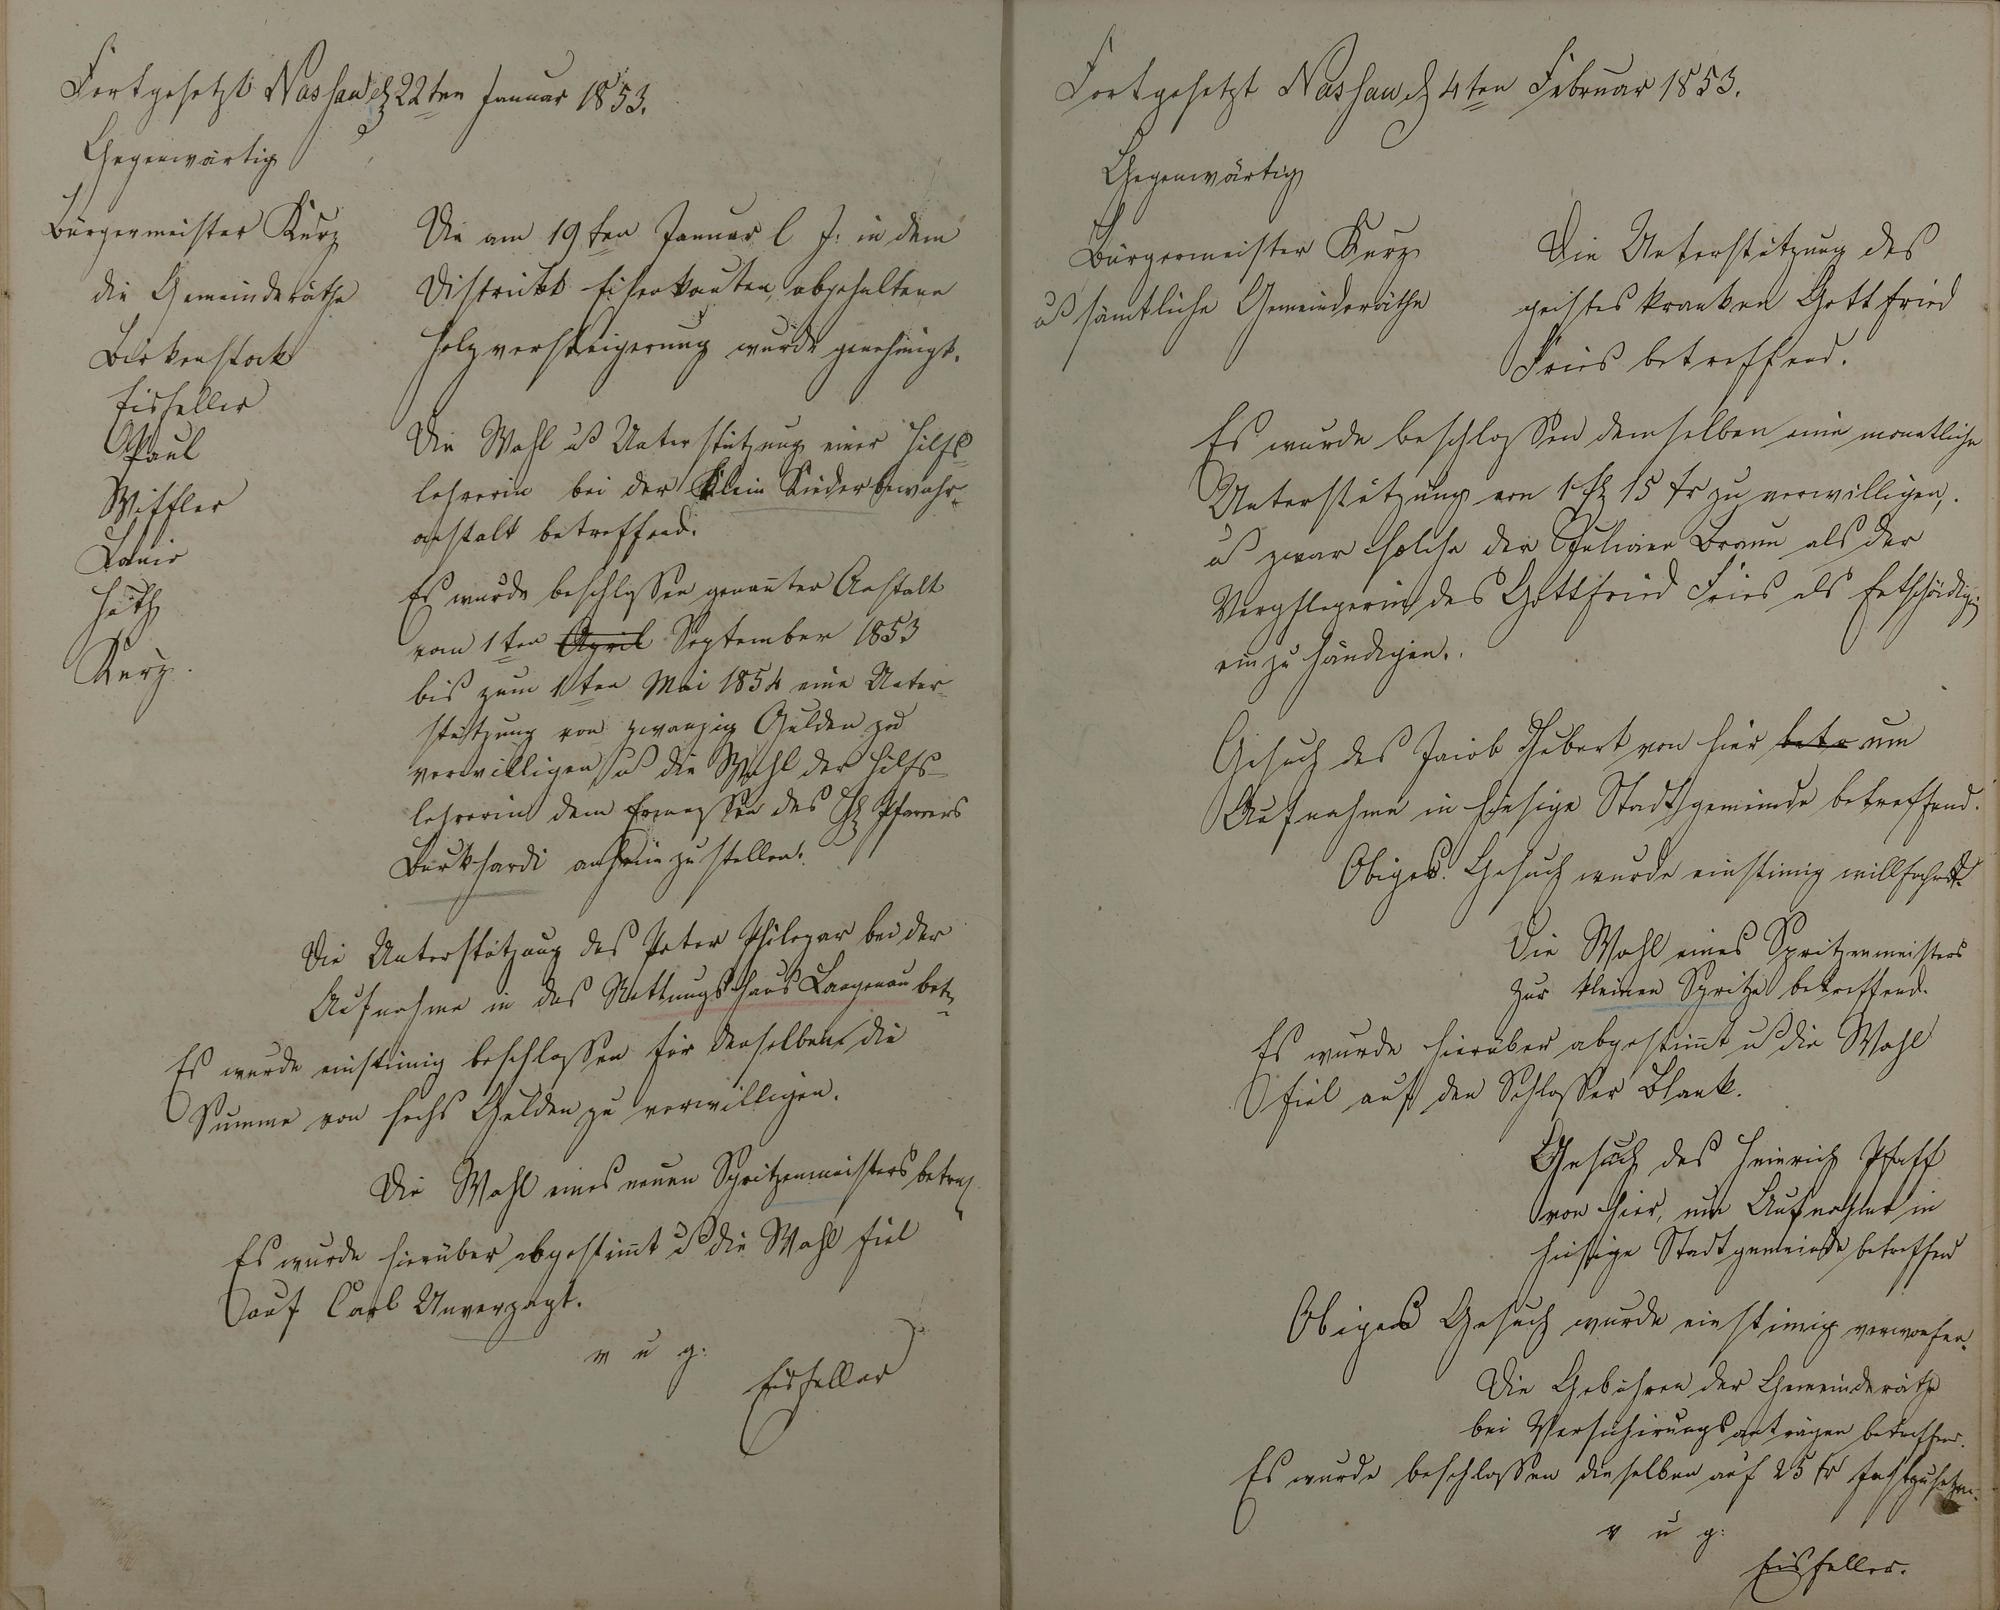 Fortgesetzt Nassau d 22ten Januar 1853.
Gegenwärtig
Bürgermeister Kurz
die Gemeinderäthe
Birkenstock
Eisfeller
Paul
Wißler
Kurz.
Die am 19ten Januar l J: in dem
Distrikt Eiserkauten, abgehaltene
Holzversteigerung wurde genehmigt.
Die Wahl u Unterstützung einer Hilfs-
lehrerin bei der Klein Kinderbewahr-
anstalt betreffend.
Es wurde beschlossen genannter Anstalt
vom 1ten April September 1853
bis zum 1ten Mai 1854 eine Unter-
stützung von zwanzig Gulden zu
verwilligen, u die Wahl der Hilfs-
lehrerin dem Ermessen des H Pfarrers
Burkhardi anheim zu stellen.
Die Unterstützung des Peter Philezar bei der
Aufnahme in das Rettungshaus Langenau betr
Es wurde einstimig beschlossen für denselben die
Summe von sechs Gulden zu verwilligen.
Die Wahl eines neuen Spritzenmeisters betreff
Es wurde hierüber abgestimt u die Wahl fiel
auf Carl Unverzagt.
v u g:
Eisfeller
Fortgesetzt Nassau d 4ten Februar 1853.
Gegenwärtig
Bürgermeister Kurz
u sämtliche Gemeinderäthe
Die Unterstützung des
geisteskranken Gottfried
Fries betreffend.
Es wurde beschlossen demselben eine monatliche
Unterstützung von 1 fl 15 kr zu verwilligen,
u zwar solche der Juliane Braun als der
Verpflegerin des Gottfried Fries als Entschädigg
einzuhändigen.
Gesuch des Jacob Hubert von hier betr um
Aufnahme in hiesige Stadtgemeinde betreffend.
Obiges Gesuch wurde einstimig willfahrt.
Die Wahl eines Spritzenmeisters
zur kleinen Spritze betreffend.
Es wurde hierüber abgestimt u die Wahl
fiel auf den Schlosser Blank.
Gesuch des Heinrich Pfaff
von hier, um Aufnahme in
hiesige Stadtgemeinde betreffend
Obiges Gesuch wurde einstimig verworfen.
Die Gebühren der Gemeinderäthe
bei Versicherungsanträgen betreffend.
Es wurde beschlossen dieselben auf 25 kr festzusetzen.
v u g:
Eisfeller.